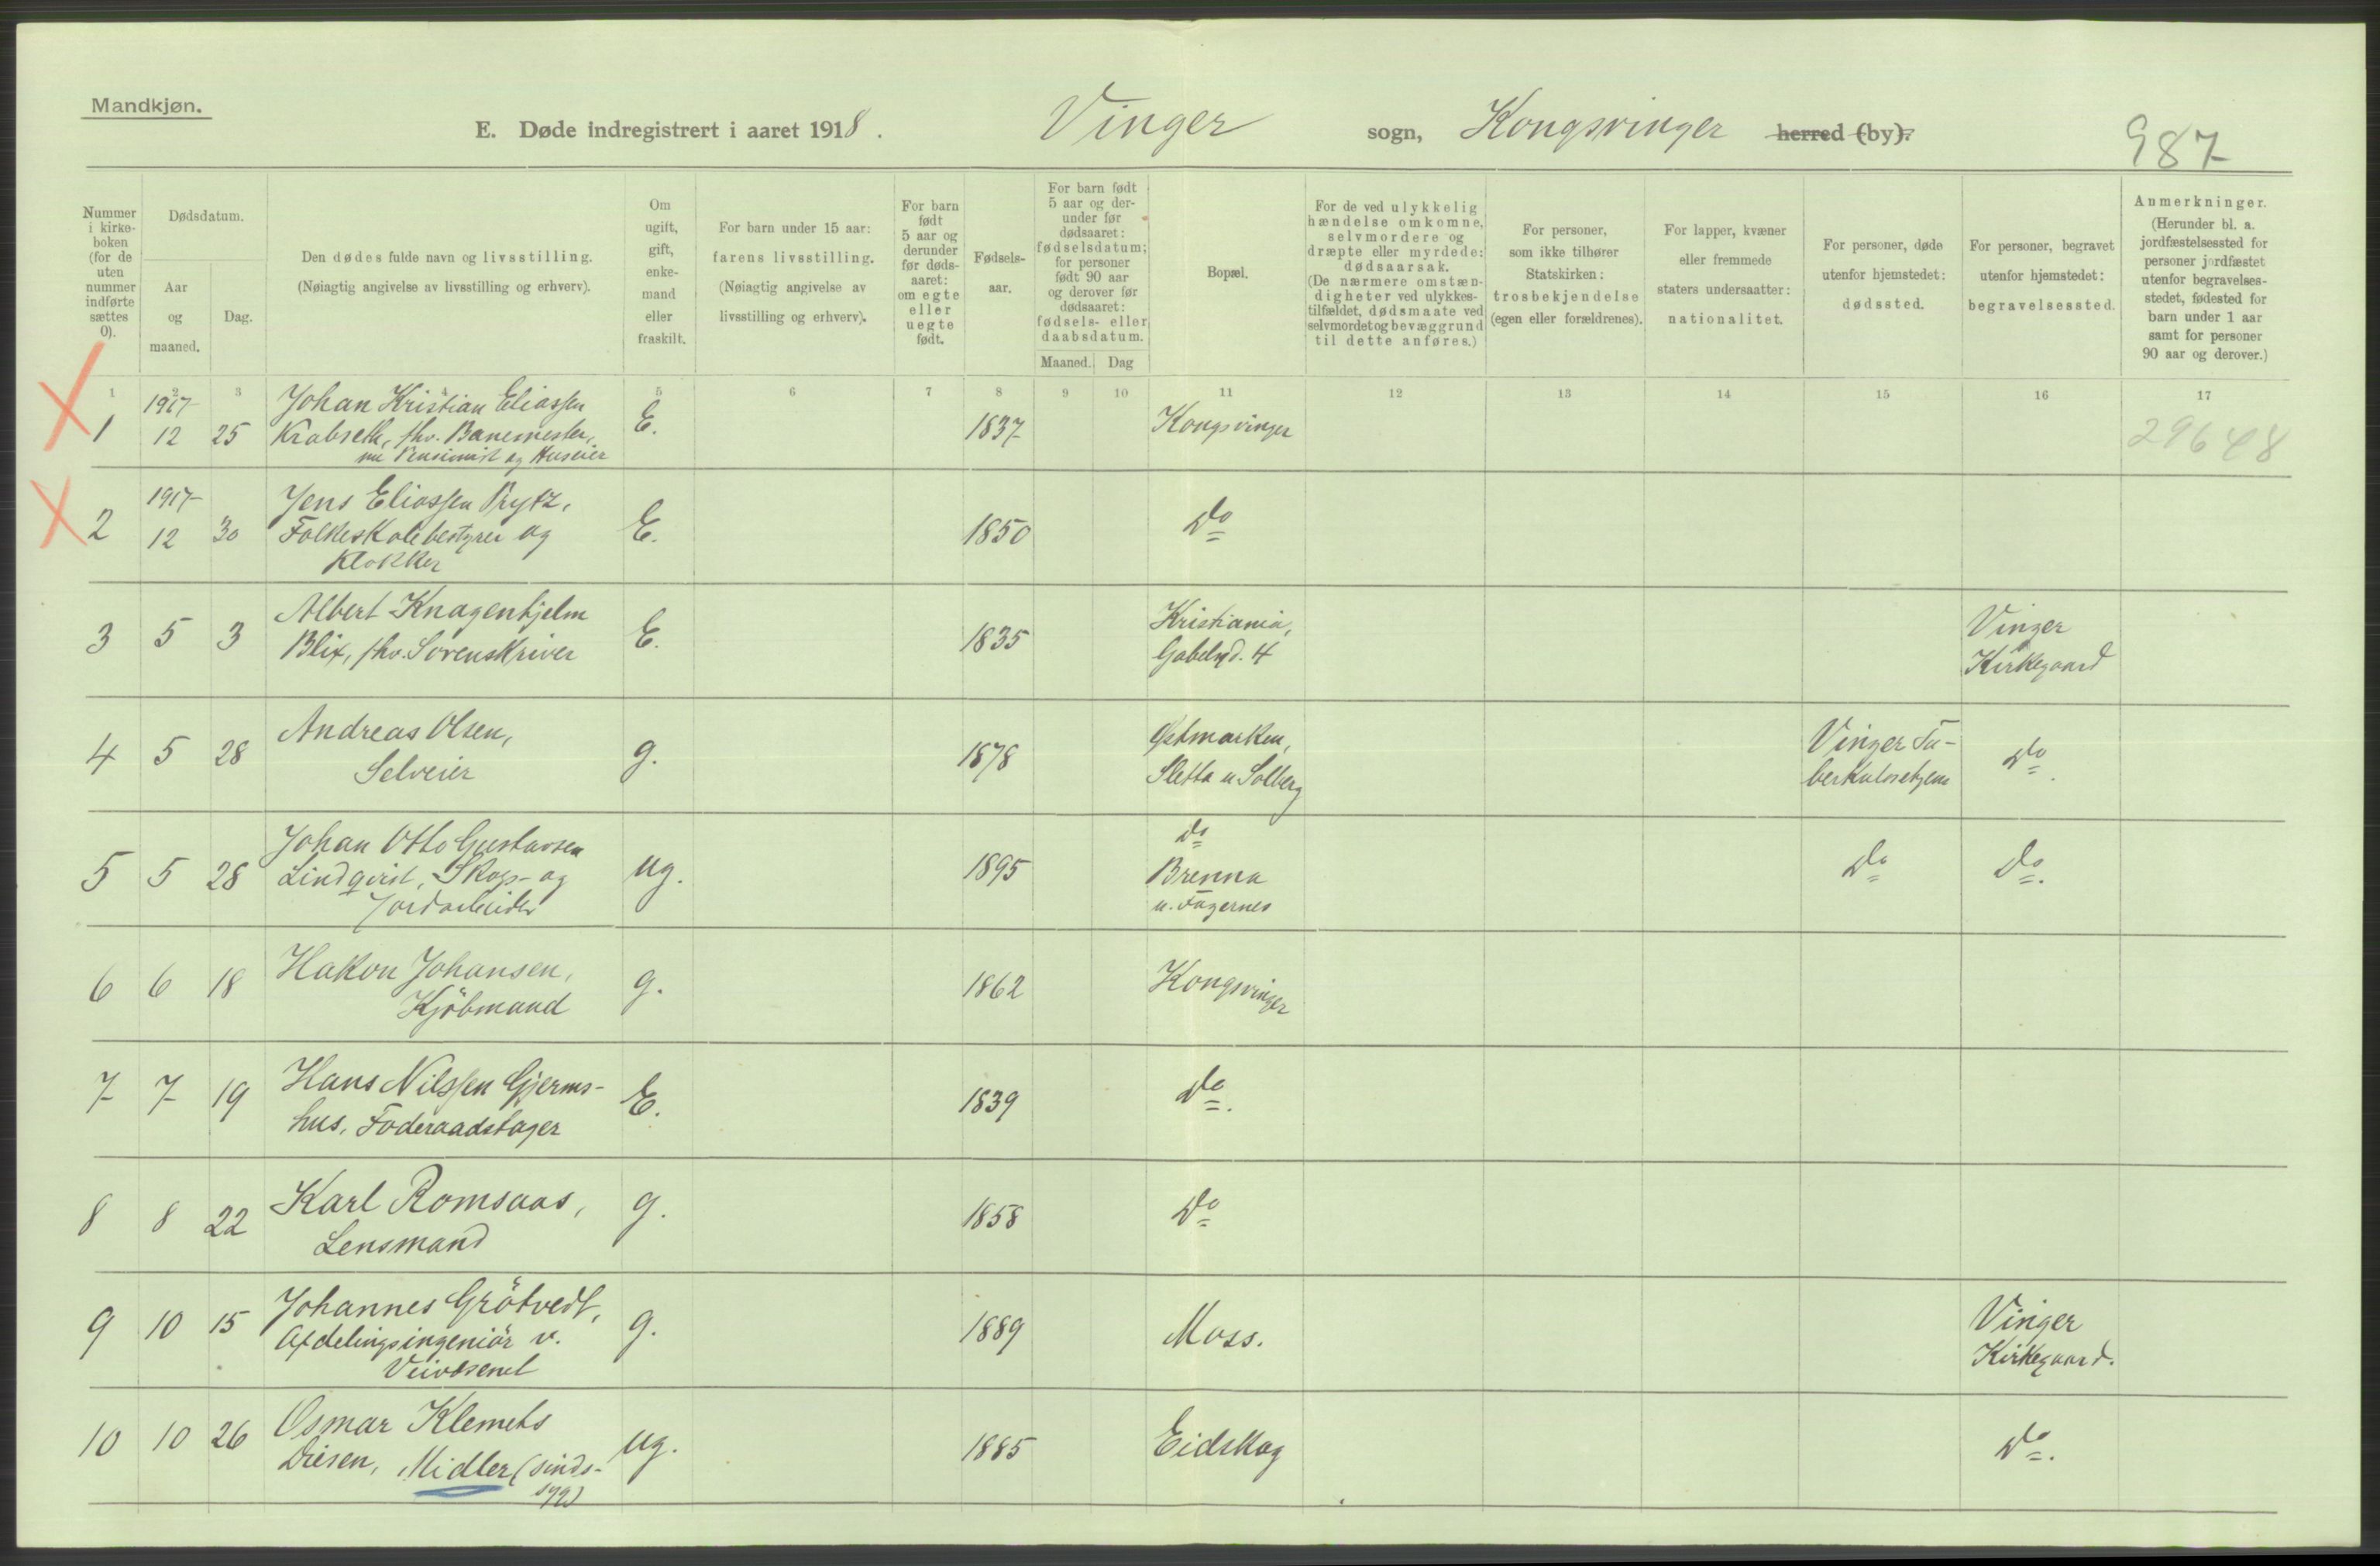 Mandkjøn.
E. Døde indregistrert i aaret 1918. Vinger sogn, Kongsvinger herred (by).
987
Nummer i kirkeboken (for de uten nummer indførte sættes 0).
Dødsdatum.
Aar og maaned.
Dag.
Den dødes fulde navn og livsstilling.
(Nøiagtig angivelse av livsstilling og erhverv).
Om ugift, gift, enkemand eller fraskilt.
For barn under 15 aar: farens livsstilling.
(Nøiagtig angivelse av livsstilling og erhverv).
For barn født 5 aar og derunder før dødsaaret: om egte eller uegte født.
Fødselsaar.
For barn født 5 aar og derunder før dødsaaret: fødselsdatum; for personer født 90 aar og derover før dødsaaret: fødsels- eller daabsdatum.
Maaned. Dag
Bopæl.
For de ved ulykkelig hændelse omkomne, selvmordere og dræpte eller myrdede: dødsaarsak.
(De nærmere omstændigheter ved ulykkestilfældet, dødsmaate ved selvmordet og bevæggrund til dette anføres.)
For personer, som ikke tilhører Statskirken: trosbekjendelse (egen eller forældrenes).
For lapper, kvæner eller fremmede staters undersaatter: nationalitet.
For personer, døde utenfor hjemstedet: dødssted.
For personer, begravet utenfor hjemstedet: begravelsessted.
Anmerkninger.
(Herunder bl. a. jordfæstelsessted for personer jordfæstet utenfor begravelsesstedet, fødested for barn under 1 aar samt for personer 90 aar og derover.)
1 2 3 4 5 6 7 8 9 10 11 12 13 14 15 16 17
1917
Johan Kristian Eliassen
1 12 25 Krabseth, fhv. Banemester, E. 1837 Kongsvinger 29648
nu Pensionist og Huseier
1917
Jens Eliassen Prytz,
2 12 30 Folkeskolebestyrer og E. 1850 Do
Klokker
Albert Knagenhjelm Kristiania, Vinger
3 5 3 Blix, fhv. Sorenskriver E. 1835 Gabelsgd. 4 Kirkegaard
Andreas Olsen, Østmarken, Vinger Tu-
4 5 28 Selveier g. 1878 Sletta u Solberg berkulosehjem Do.
Johan Otto Gustavsen Do
5 5 28 Lindqvist, Skogs- og ug. 1895 Brenna Do Do.
Jordarbeider u. Fagernes
Hakon Johansen,
6 6 18 Kjöbmand g. 1862 Kongsvinger
Hans Nilssen Gjerms-
7 7 19 hus, Foderaadstager E. 1839 Do.
Karl Romsaas,
8 8 22 Lensmand g. 1858 Do
Johannes Grötvedt, Vinger
9 10 15 Afdelingsingeniör v. g. 1889 Moss. Kirkegaard.
Veivæsenet
Osmar Klemets
10 10 26 Diesen, Midler (sinds- ug. 1885 Eidskog Do.
syg)